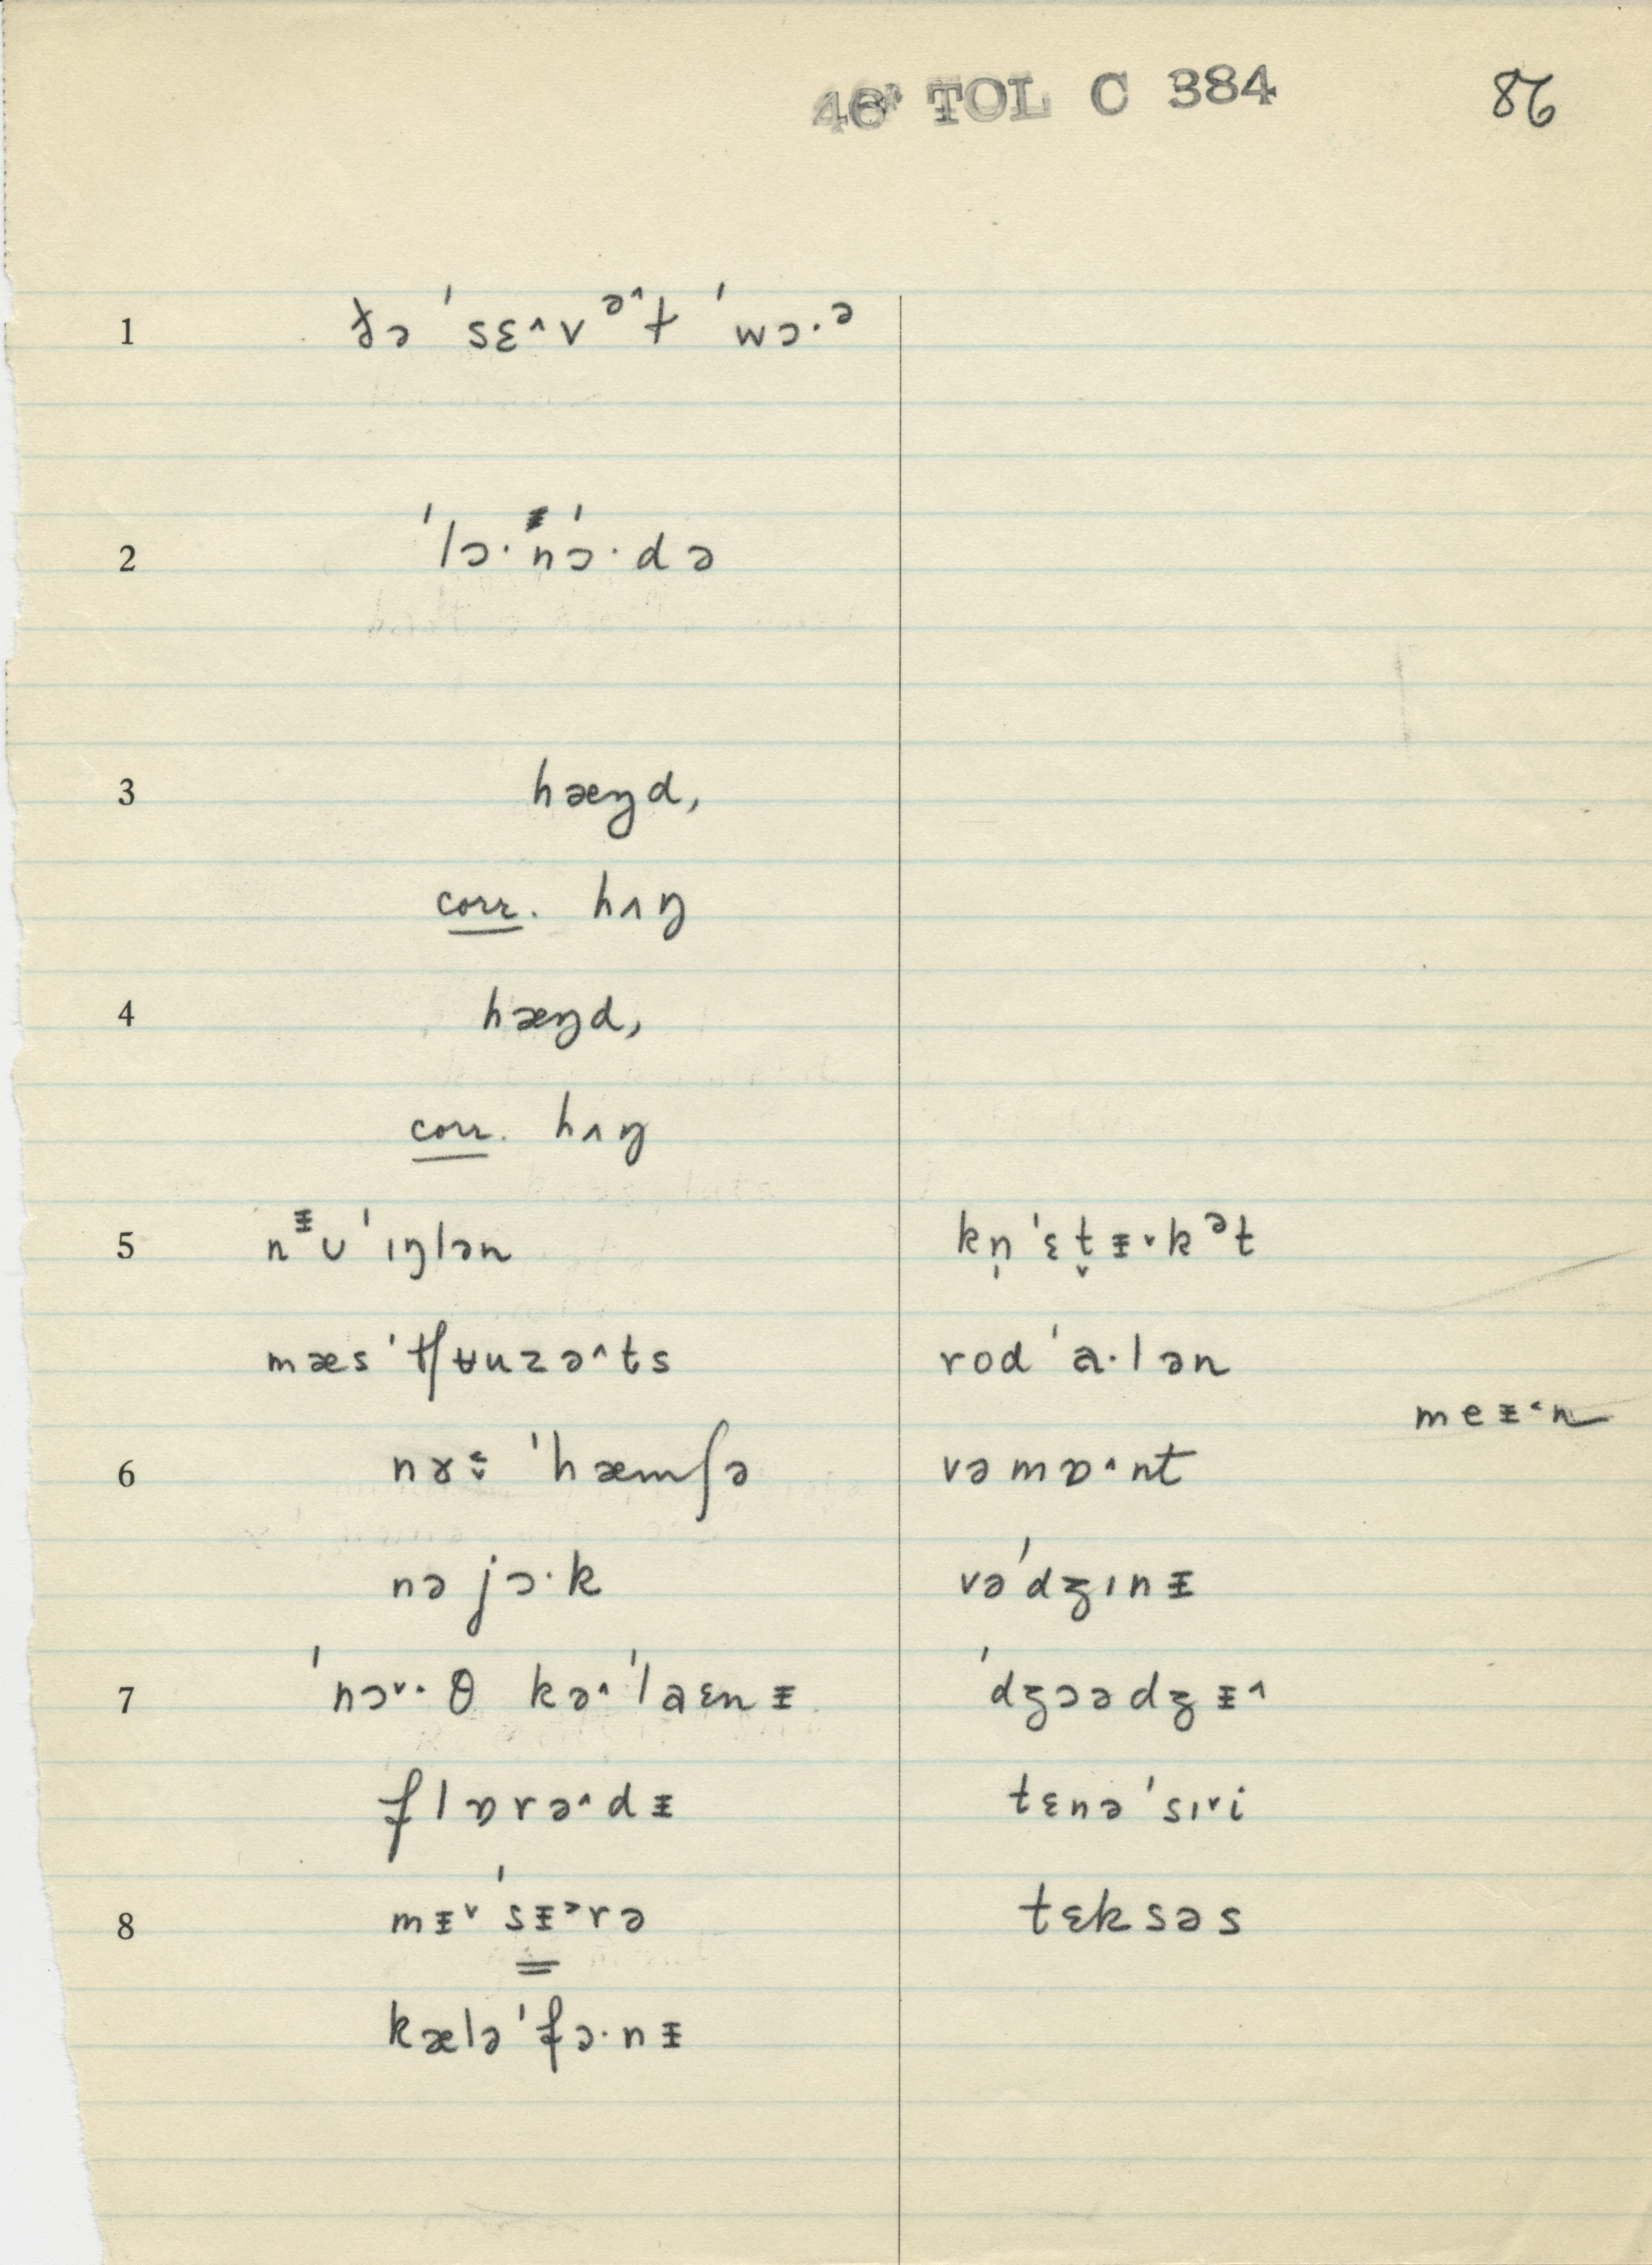 46* TOL C 384 86
1 ðə ˈsɛ˄vᵊ˄t ˈwɔ·ə
2 ˈlɔ·ˈnɔ·də
3 hæŋd,
corr. hʌŋ
4 hæŋd,
corr. hʌŋ
5 nᵻu ˈɪŋlən kn̩ˈɛt̬ᵻ˅kᵊt
mæsˈtʃʉuzə˄ts rodˈa·lən
meᵻ˂n
6 ˈhæmʃə vəmɒ˄nt
nəjɔ·k vəˈdʒɪnᵻ
7 ˈnɔ˅·θ kə˄ˈlaɛnᵻ ˈdʒɔədʒᵻ˄
flɒrə˄dᵻ tɛnəˈsɪ˅i
8 mᵻ˅ˈsᵻ˃rə tɛksəs
kæləˈfɔ·nᵻ